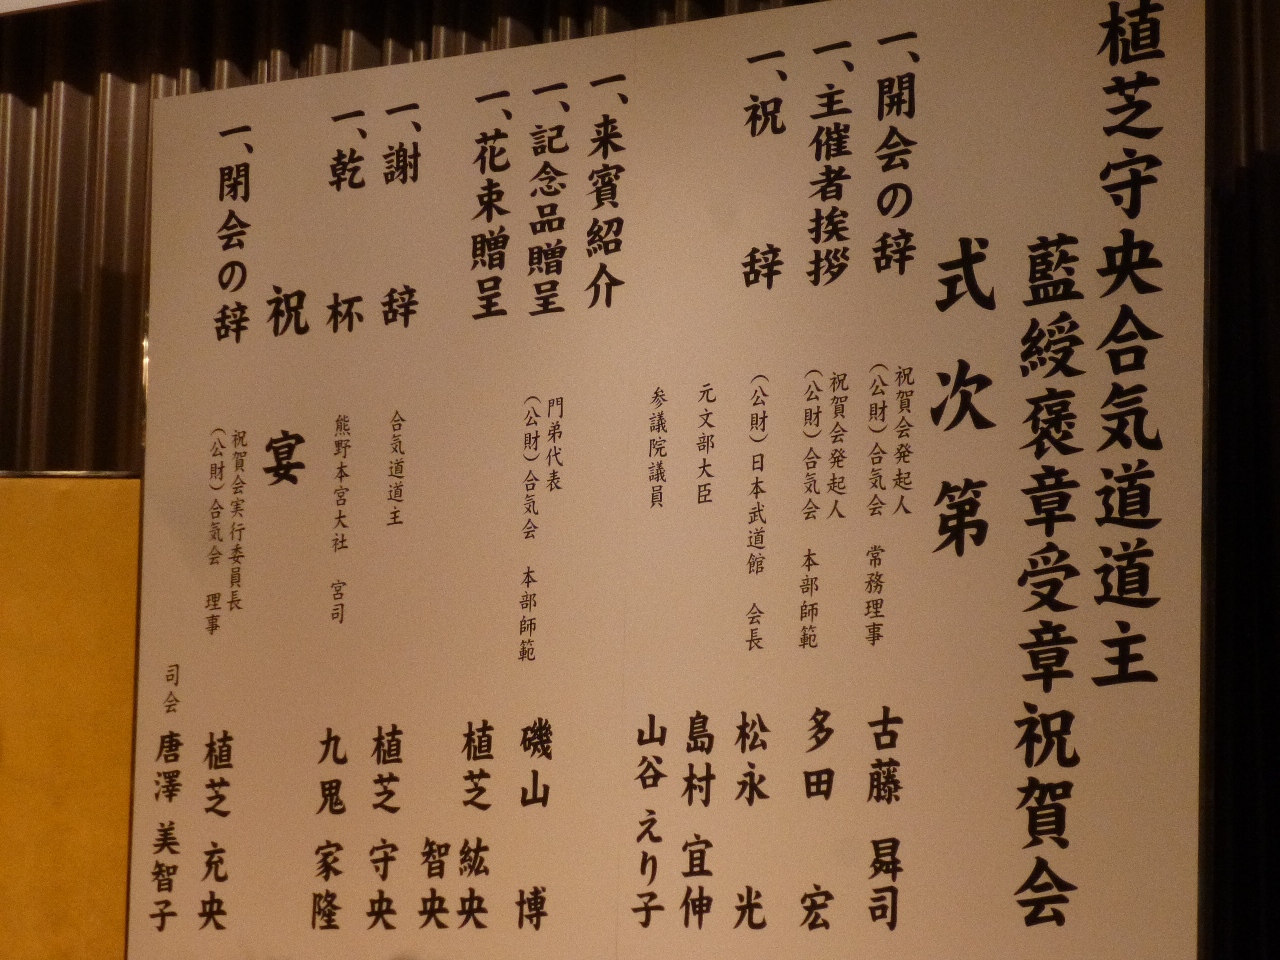 植芝守央合気道道主
藍綬褒章受章祝賀会
式次第
一、開会の辞 祝賀会発起人
（公財）合気会 常務理事 古藤 昇司
一、主催者挨拶 祝賀会発起人
（公財）合気会 本部師範 多田 宏
一、祝辞 （公財）日本武道館 会長 松永 光
元文部大臣 島村 宜伸
参議院議員 山谷 えり子
一、来賓紹介
一、記念品贈呈 門弟代表
（公財）合気会 本部師範 磯山 博
一、花束贈呈 植芝 紘央
智央
一、謝辞 合気道道主 植芝 守央
一、乾杯 熊野本宮大社 宮司 九鬼 家隆
祝宴
一、閉会の辞 祝賀会実行委員長
（公財）合気会 理事 植芝 充央
司会 唐澤 美智子